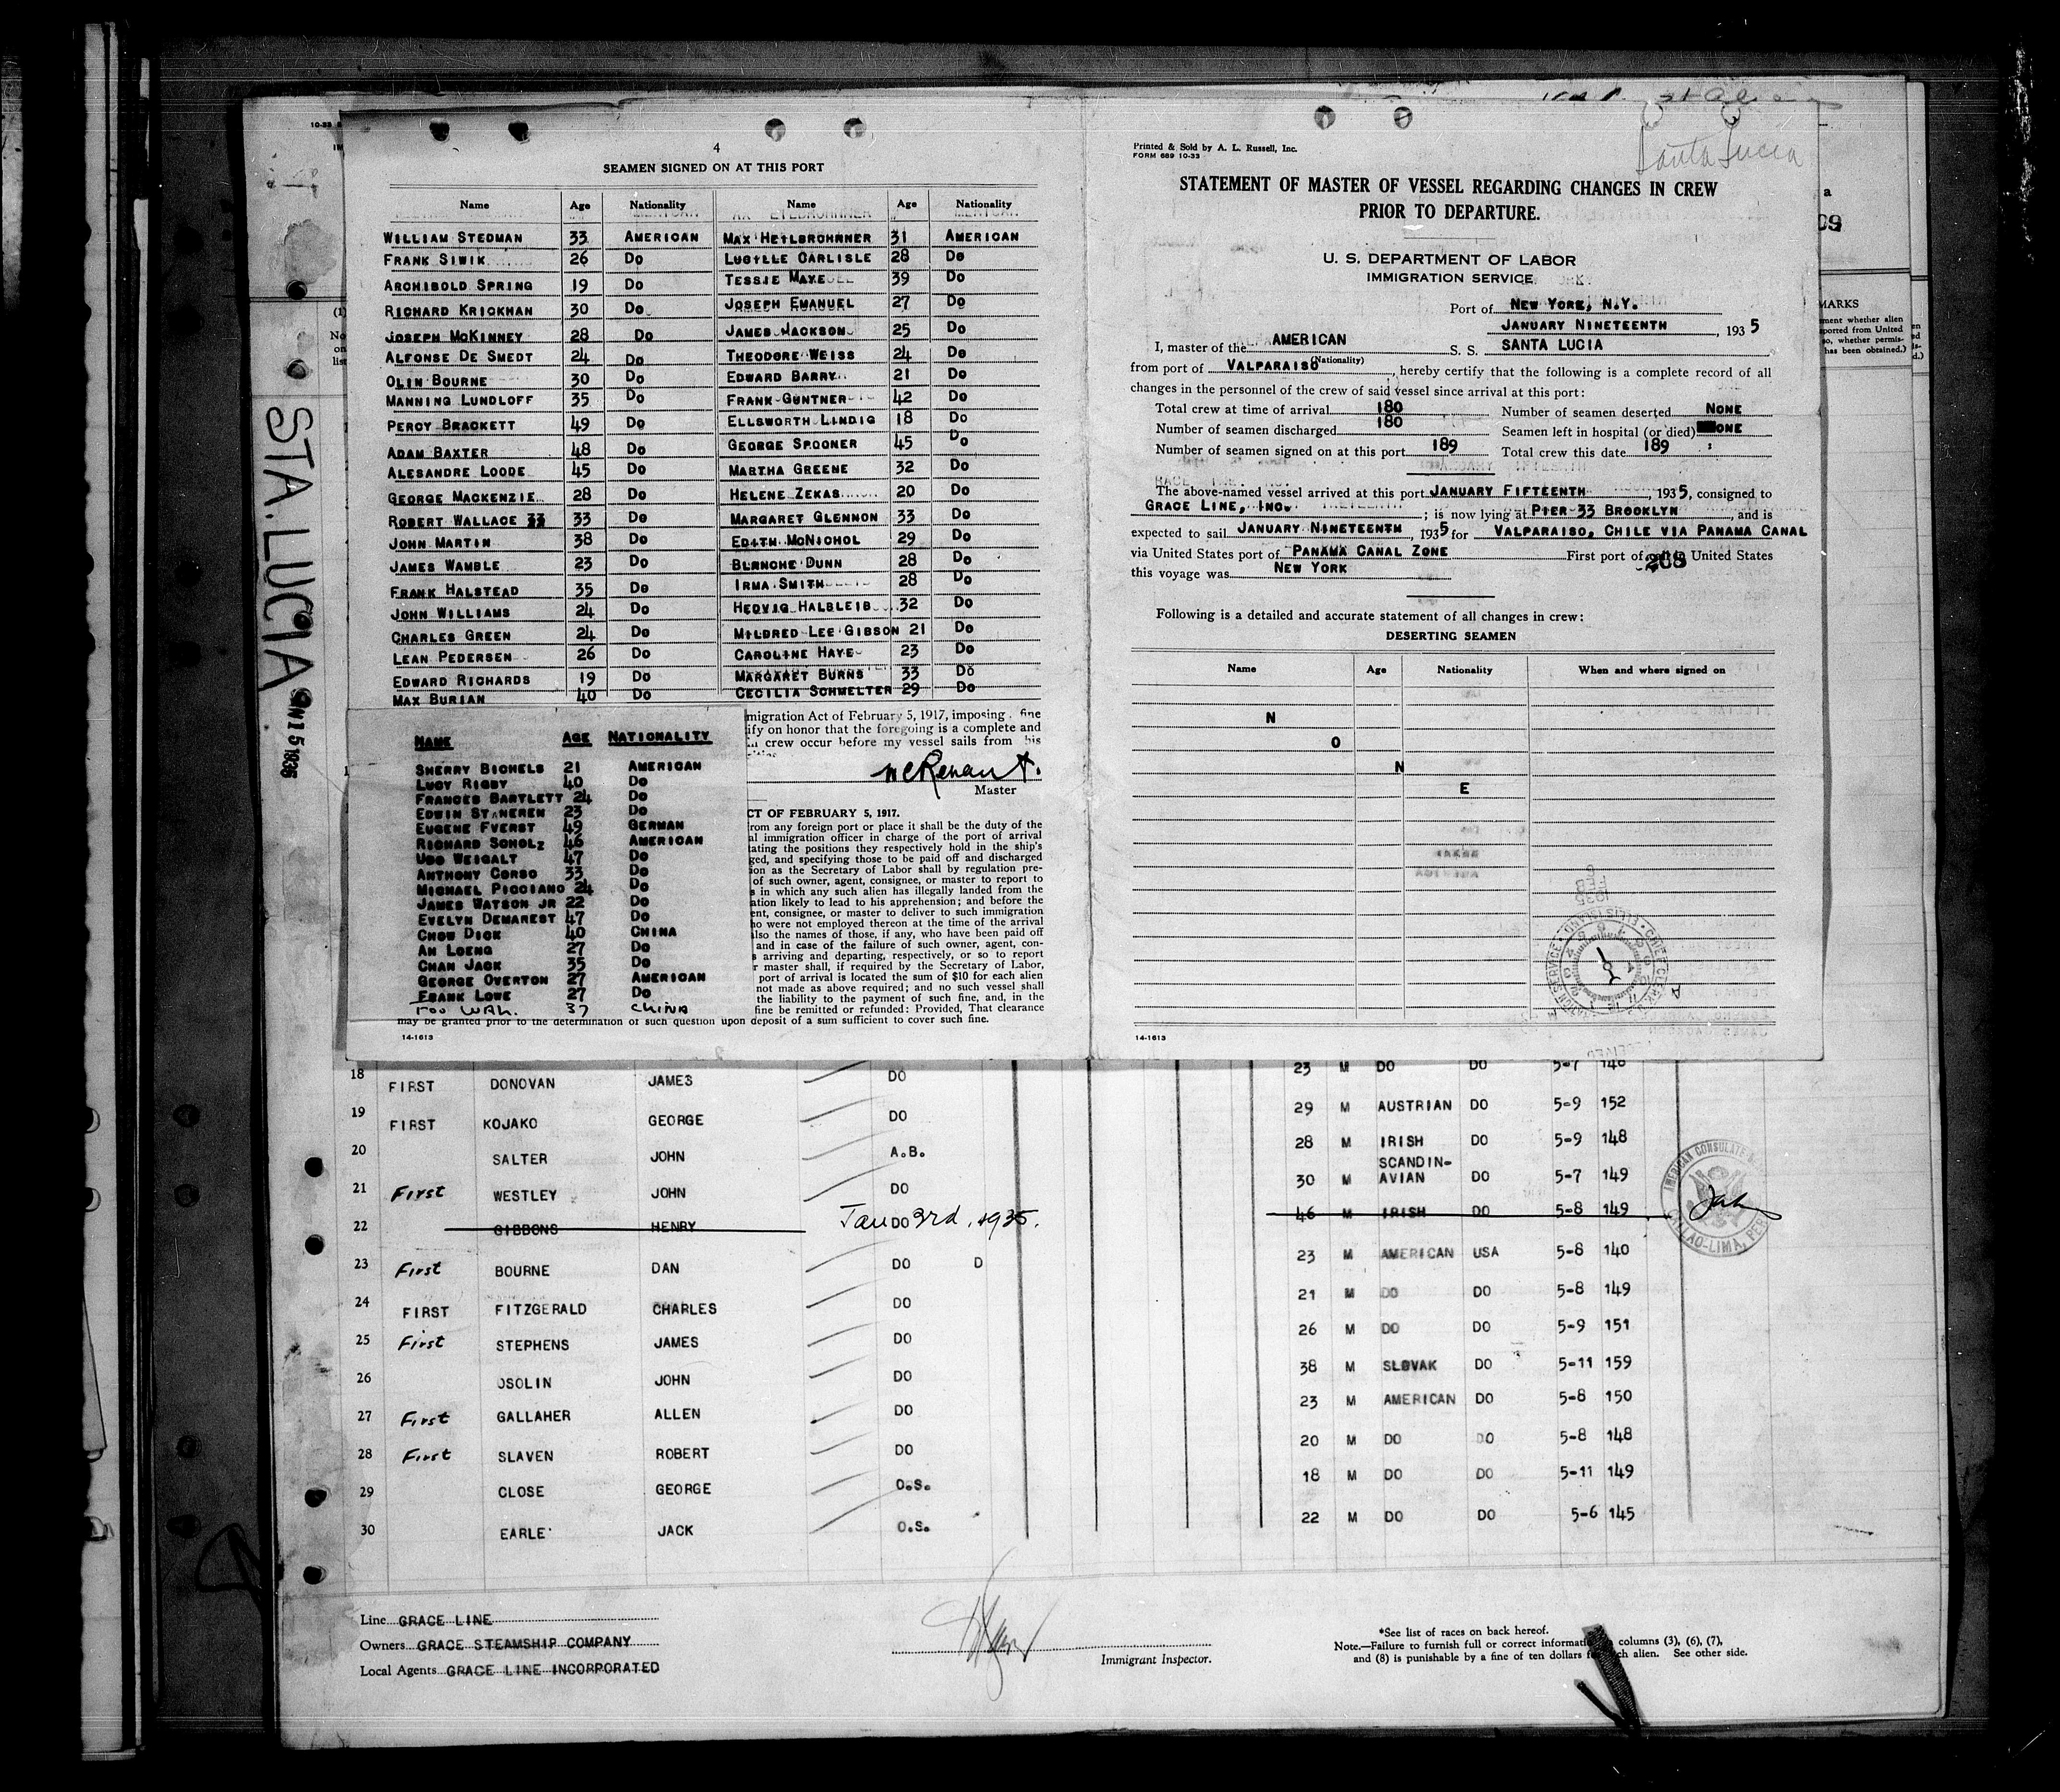 4
SEAMEN SIGNED ON AT THIS PORT
Name Age Nationality Name Age Nationality
WILLIAM STEDMAN 33 AMERICAN MAX HEILBROHNNER 31 AMERICAN
FRANK SIWIK 26 DO LUCILLE CARLISLE 28 DO
ARCHIBOLD SPRING 19 DO TESSIE MAYE 39 DO
RICHARD KRICKHAN 30 DO JOSEPH EMANUEL 27 DO
JOSEPH MCKINNEY 28 DO JAMES JACKSON 25 DO
ALFONSE DE SMEDT 24 DO THEODORE WEISS 24 DO
OLIN BOURNE 30 DO EDWARD BARRY 21 DO
MANNING LUNDLOFF 35 DO FRANK GUNTNER 42 DO
PERCY BRACKETT 49 DO ELLSWORTH LINDIG 18 DO
ADAM BAXTER 48 DO GEORGE SPOONER 45 DO
ALESANDRE LOODE 45 DO MARTHA GREENE 32 DO
GEORGE MACKENZIE 28 DO HELENE ZEKAS 20 DO
ROBERT WALLACE 33 33 DO MARGARET GLENNON 33 DO
JOHN MARTIN 38 DO EDITH MCNICHOL 29 DO
JAMES WAMBLE 23 DO BLANCHE DUNN 28 DO
FRANK HALSTEAD 35 DO IRMA SMITH 28 DO
JOHN WILLIAMS 24 DO HEDVIG HALBLEIB 32 DO
CHARLES GREEN 24 DO MILDRED LEE GIBSON 21 DO
LEAN PEDERSEN 26 DO CAROLINE HAYE 23 DO
EDWARD RICHARDS 19 DO MARGARET BURNS 33 DO
MAX BURIAN 40 DO CECILIA SCHMELTER 29 DO
migration Act of February 5, 1917, imposing fine
ify on honor that the foregoing is a complete and
crew occur before my vessel sails from his
Master
NAME AGE NATIONALITY
SHERRY BICHELS 21 AMERICAN
LUCY RIGBY 40 DO
FRANCES BARTLETT 24 DO
EDWIN STANEREN 23 DO
EUGENE FVERST 49 GERMAN
RICHARD SCHOLZ 46 AMERICAN
UDO WEIGALT 47 DO
ANTHONY CORSO 33 DO
MICHAEL PICCIANO 24 DO
JAMES WATSON JR 22 DO
EVELYN DEMAREST 47 DO
CHOW DICK 40 CHINA
AN LOENG 27 DO
CHAN JACK 35 DO
GEORGE OVERTON 27 AMERICAN
FRANK LOWE 27 DO
Foo WAH. 37 CHINA
CT OF FEBRUARY 5, 1917.
rom any foreign port or place it shall be the duty of the
al immigration officer in charge of the port of arrival
tating the positions they respectively hold in the ship's
ged, and specifying those to be paid off and discharged
ion as the Secretary of Labor shall by regulation pre-
of such owner, agent, consignee, or master to report to
s in which any such alien has illegally landed from the
ation likely to lead to his apprehension; and before the
ent, consignee, or master to deliver to such immigration
ho were not employed thereon at the time of the arrival
lso the names of those, if any, who have been paid off
and in case of the failure of such owner, agent, con-
s arriving and departing, respectively, or so to report
r master shall, if required by the Secretary of Labor,
port of arrival is located the sum of $10 for each alien
not made as above required; and no such vessel shall
the liability to the payment of such fine, and, in the
fine be remitted or refunded: Provided, That clearance
may be granted prior to the determination of such question upon deposit of a sum sufficient to cover such fine.
14-1613
Santa Lucia
Printed & Sold by A. L. Russell, Inc.
FORM 689 10-33
STATEMENT OF MASTER OF VESSEL REGARDING CHANGES IN CREW
PRIOR TO DEPARTURE.
U. S. DEPARTMENT OF LABOR
IMMIGRATION SERVICE
Port of NEW YORK, N.Y.
JANUARY NINETEENTH, 1935
I, master of the AMERICAN S. S. SANTA LUCIA
(Nationality)
from port of VALPARAISO, hereby certify that the following is a complete record of all
changes in the personnel of the crew of said vessel since arrival at this port:
Total crew at time of arrival 180 Number of seamen deserted NONE
Number of seamen discharged 180 Seamen left in hospital (or died) NONE
Number of seamen signed on at this port 189 Total crew this date 189
The above-named vessel arrived at this port JANUARY FIFTEENTH, 1935, consigned to
GRACE LINE, INC. ; is now lying at PIER 33 BROOKLYN, and is
expected to sail JANUARY NINETEENTH, 1935 for VALPARAISO, CHILE VIA PANAMA CANAL
via United States port of PANAMA CANAL ZONE First port of United States
this voyage was NEW YORK
208
Following is a detailed and accurate statement of all changes in crew:
DESERTING SEAMEN
Name Age Nationality When and where signed on
N
O
N
E
14-1613
STA. LUCIA
18 FIRST DONOVAN JAMES DO 23 M DO DO 5-7 148
19 FIRST KOJAKO GEORGE DO 29 M AUSTRIAN DO 5-9 152
20 SALTER JOHN A.B. 28 M IRISH DO 5-9 148
21 First WESTLEY JOHN DO 30 M SCANDIN-AVIAN DO 5-7 149
22 GIBBONS HENRY DO Jan 3rd, 1935. 46 M IRISH DO 5-8 149
23 First BOURNE DAN DO D 23 M AMERICAN USA 5-8 140
24 FIRST FITZGERALD CHARLES DO 21 M DO DO 5-8 149
25 First STEPHENS JAMES DO 26 M DO DO 5-9 151
26 OSOLIN JOHN DO 38 M SLOVAK DO 5-11 159
27 First GALLAHER ALLEN DO 23 M AMERICAN DO 5-8 150
28 First SLAVEN ROBERT DO 20 M DO DO 5-8 148
29 CLOSE GEORGE O.S. 18 M DO DO 5-11 149
30 EARLE JACK O.S. 22 M DO DO 5-6 145
Line GRACE LINE
Owners GRACE STEAMSHIP COMPANY
Local Agents GRACE LINE INCORPORATED
Immigrant Inspector.
*See list of races on back hereof.
Note.—Failure to furnish full or correct information columns (3), (6), (7),
and (8) is punishable by a fine of ten dollars alien. See other side.